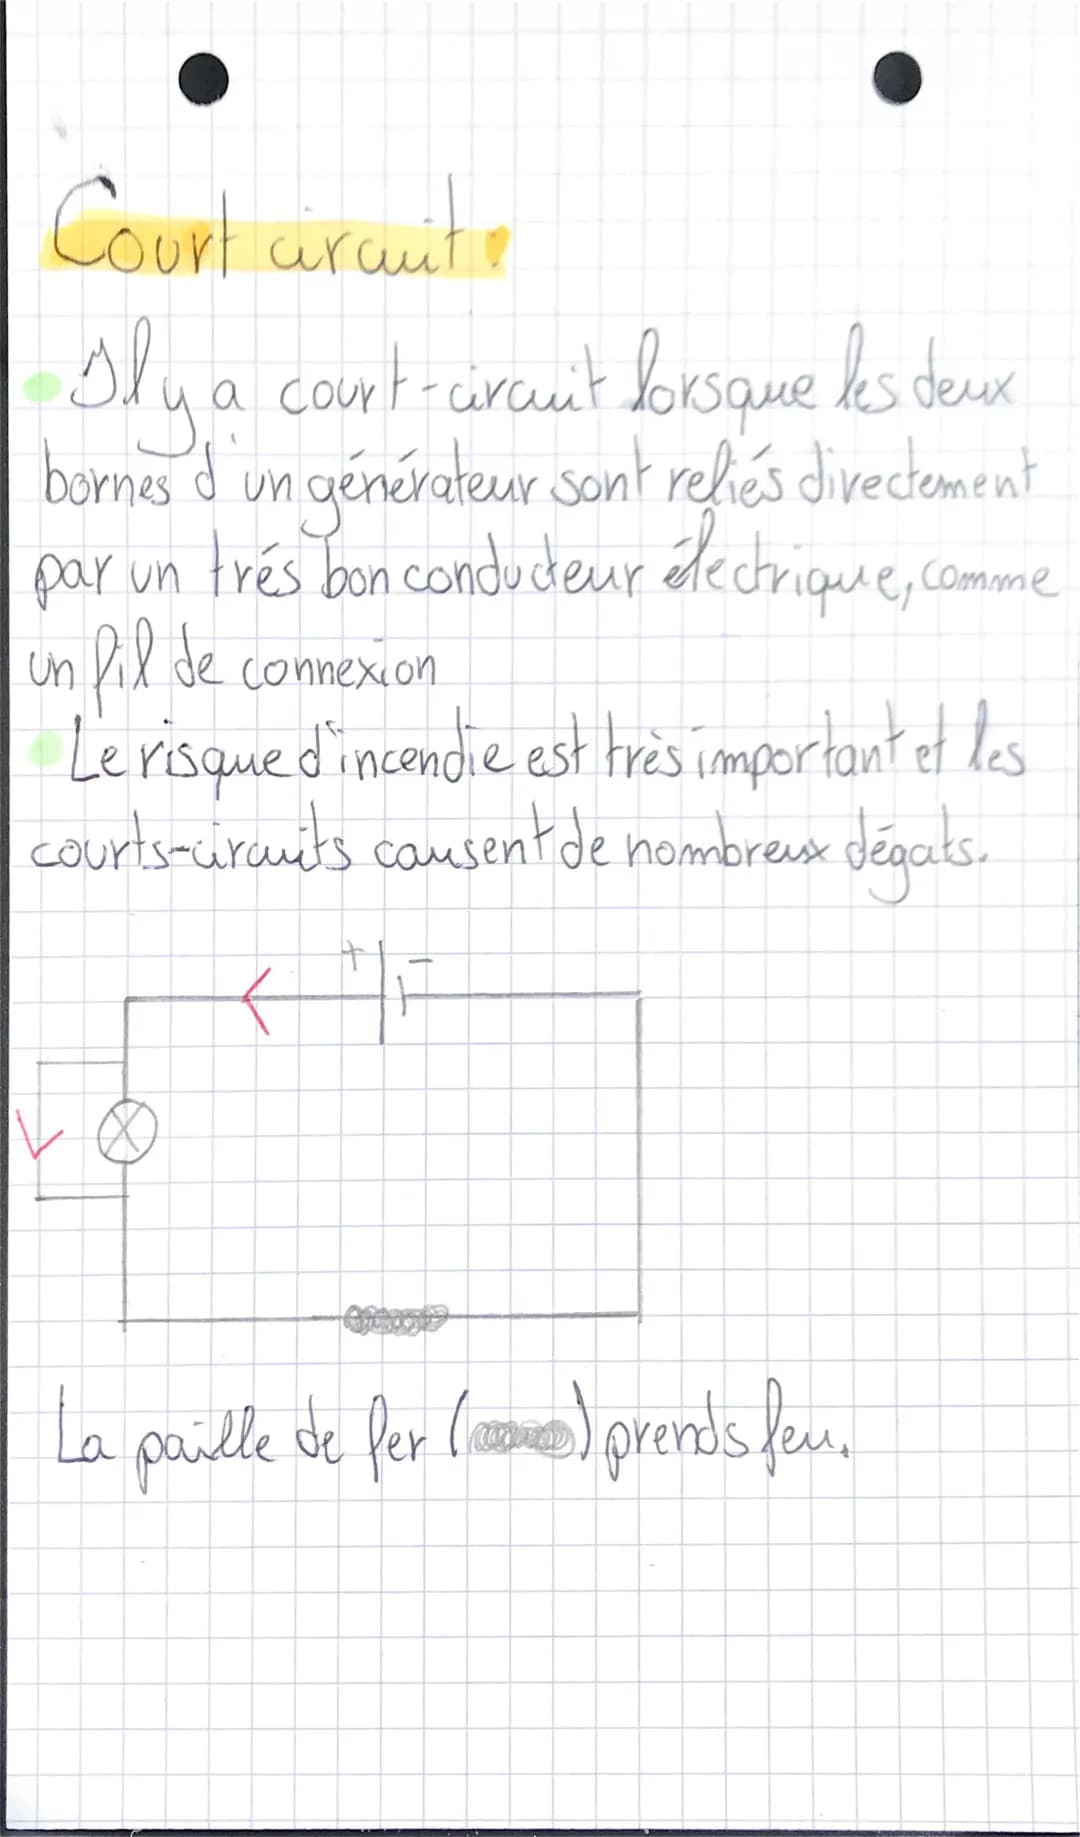 Court circuit:
• Il y a court-circuit lorsque les deux
bornes d'un générateur sont reliés directement
par un trés bon conducteur électrique, comme
un fil de connexion
• Le risque d'incendie est très important et les
courts-circuits causent de nombreux dégats.
+ -
La paille de fer ( ) prends feu.